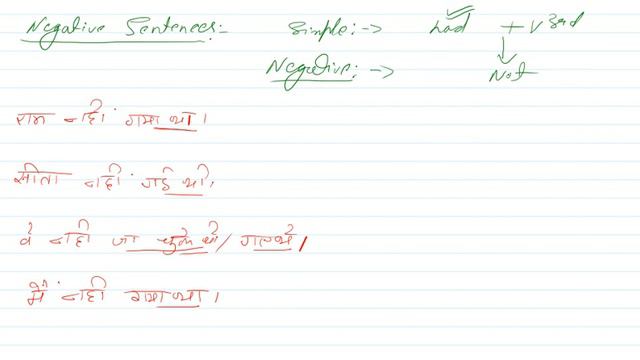 Negative Sentences:- Simple:→ had + V 3rd
Negative:→ Not
राम नहीं गया था।
सीता नहीं गई थी।
वे नहीं जा चुके थे/गए थे।
मैं नहीं गया था।